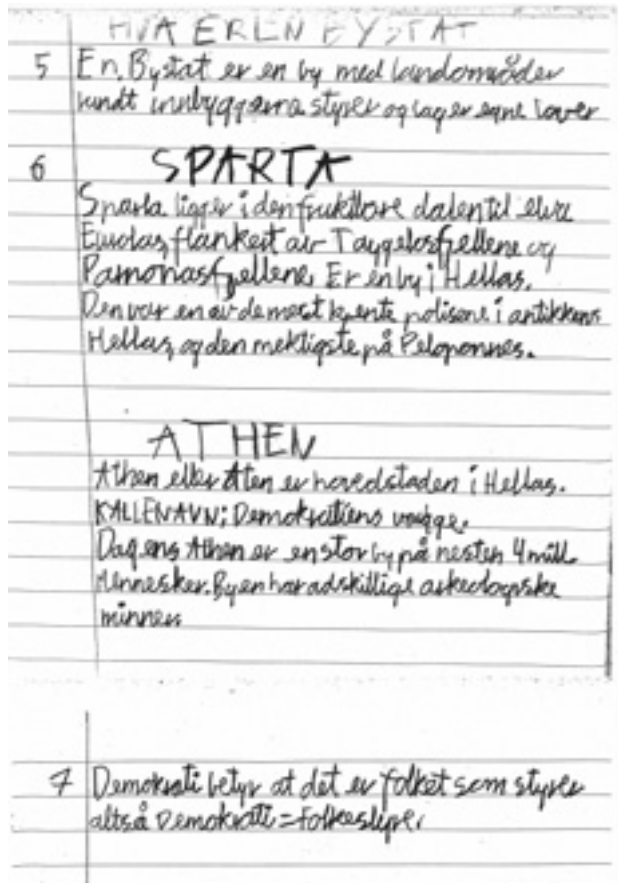 HVA ER EN BYSTAT
5 En Bystat er en by med landområder
rundt innbyggerna styrer og lager egne lover
6 SPARTA
Sparta ligger i den fruktbare dalen til elva
Eurotas, flankert av Taygetosfjellene og
Parnonasfjellene. Er en by i Hellas.
Den var en av de mest kjente polisene i antikkens
Hellas, og den mektigste på Peloponnes.
ATHEN
Athen eller Aten er hovedstaden i Hellas.
KALLENAVN: Demokratiens vugge.
Dagens Athen er en stor by på nesten 4 mill
Mennesker. Byen har adskillige arkeologiske
minner
7 Demokrati betyr at det er folket som styrer
altså Demokrati = folkestyre.